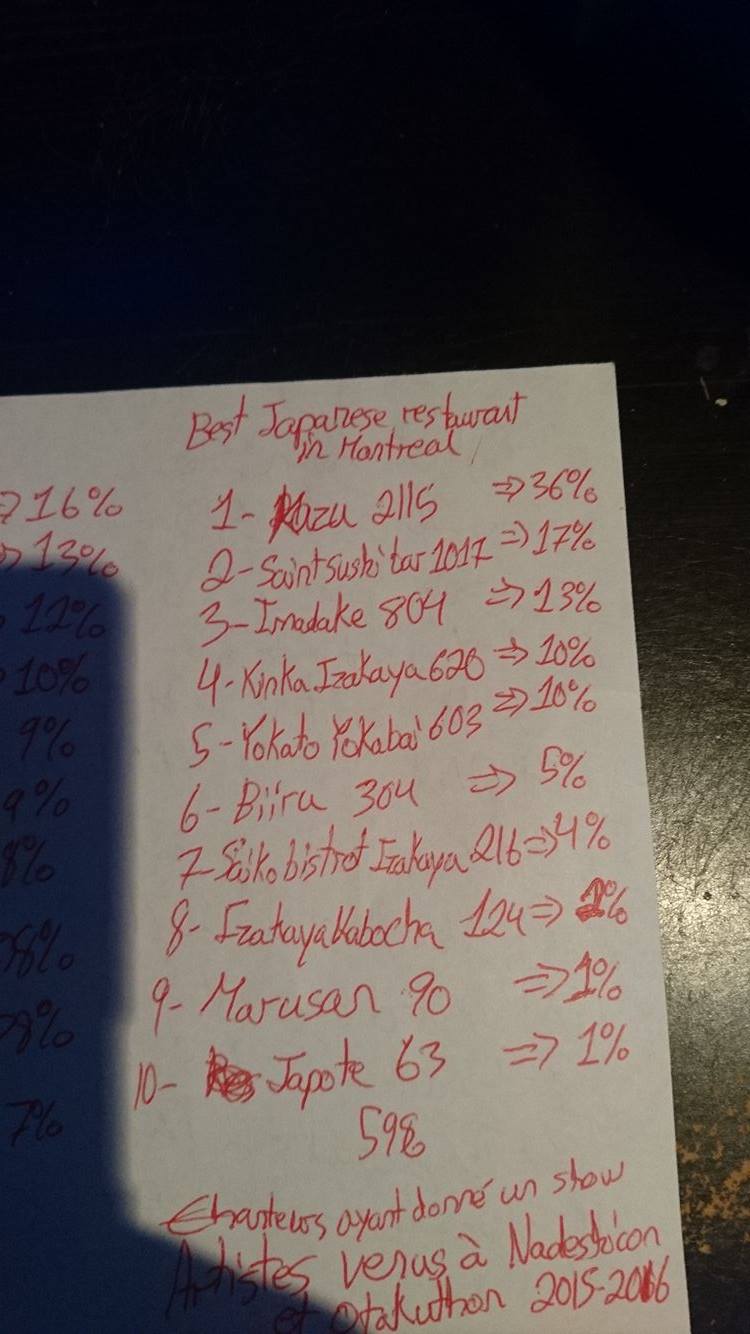 Best Japanese restaurant
in Montreal
1- Kazu 2115 => 36%
2- Saint sushi bar 1017 => 17%
3- Imadake 804 => 13%
4- Kinka Izakaya 620 => 10%
5- Yokato Yokabai 603 => 10%
6- Biiru 304 => 5%
7- Saiko bistrot Izakaya 216 => 4%
8- Izakaya Kabocha 124 => 2%
9- Marusan 90 => 1%
10- Japote 63 => 1%
598
Chanteurs ayant donné un show
Artistes venus à Nadeshicon
et Otakuthon 2015-2016
=> 16%
=> 13%
12%
10%
9%
9%
8%
8%
8%
7%